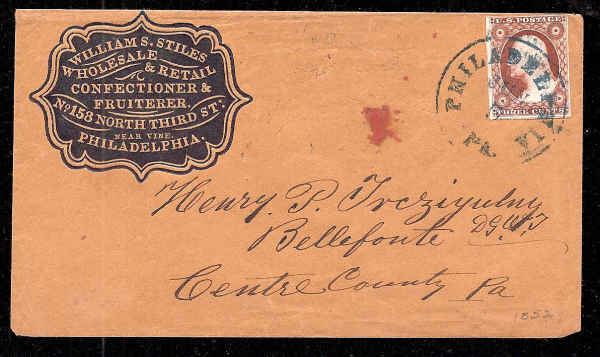 WILLIAM S. STILES
WHOLESALE
& RETAIL
CONFECTIONER &
FRUITERER.
No. 158 NORTH THIRD ST.
NEAR VINE.
PHILADELPHIA.
U.S. POSTAGE
THREE CENTS
PHILADELPHIA
Pa
Henry. P.
Bellefonte
Centre County Pa
1852